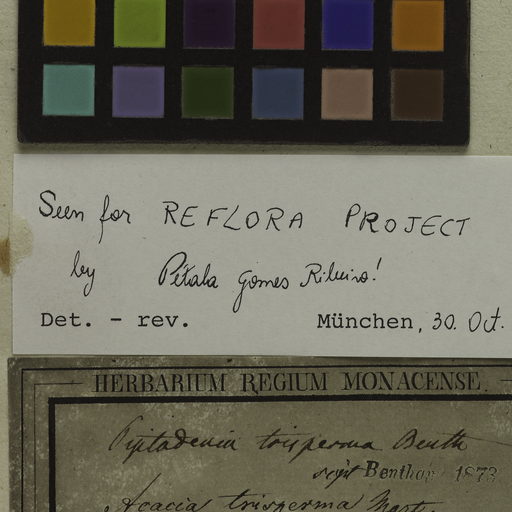 Seen for REFLORA PROJECT
by Pétala Gomes Ribeiro!
Det. - rev. München, 30. Oct.
HERBARIUM REGIUM MONACENSE.
Piptadenia trisperma Benth
script Bentham 1873
Acacia trisperma Mart.